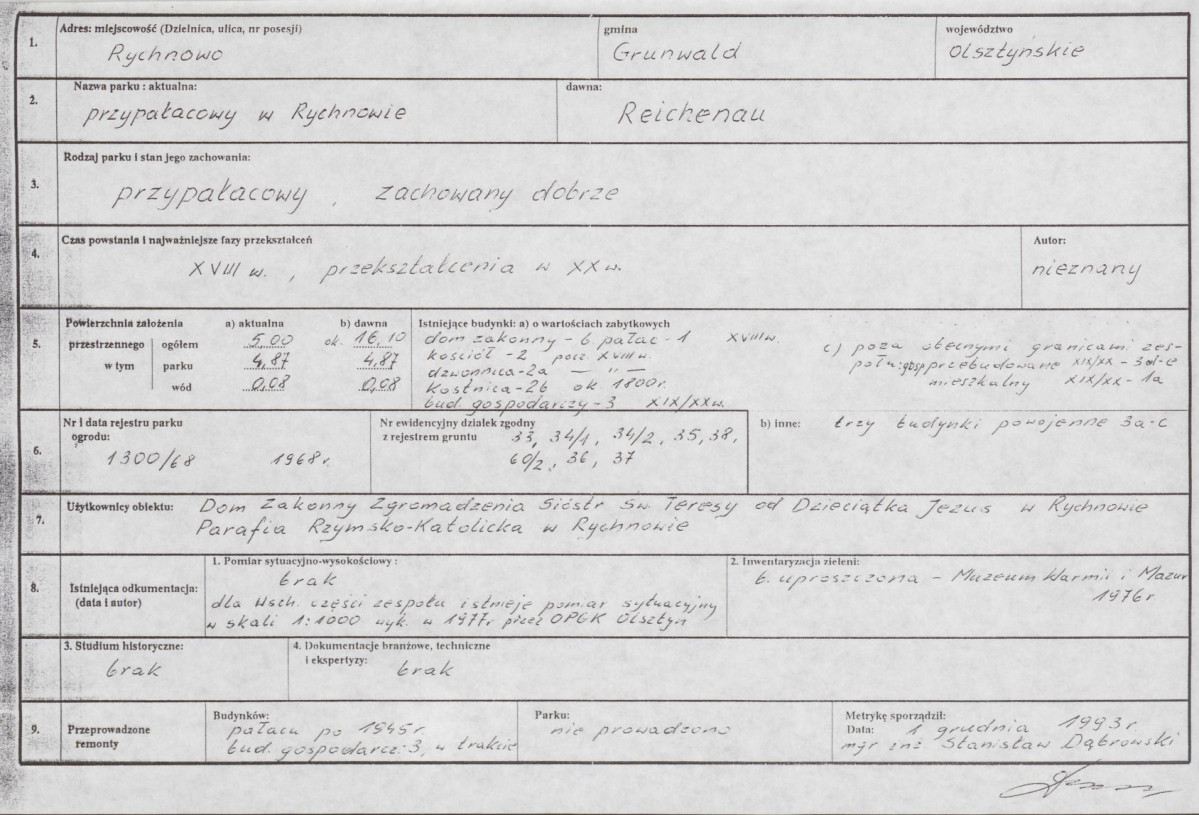 1. Adres: miejscowość (Dzielnica, ulica, nr posesji)
Rychnowo
gmina
Grunwald
województwo
Olsztyńskie
2. Nazwa parku : aktualna:
przypałacowy w Rychnowie
dawna:
Reichenau
3. Rodzaj parku i stan jego zachowania:
przypałacowy , zachowany dobrze
4. Czas powstania i najważniejsze fazy przekształceń
XVIII w. , przekształcenia w XX w.
Autor:
nieznany
5. Powierzchnia założenia a) aktualna b) dawna
przestrzennego ogółem 5,00 ok. 16,10
w tym parku 4,87 4,87
wód 0,08 0,08
Istniejące budynki: a) o wartościach zabytkowych
dom zakonny - b. pałac - 1 XVIIIw.
kościół - 2 pocz XVIII w.
dzwonnica - 2a — " —
kostnica - 2b ok. 1800r.
bud. gospodarczy - 3 XIX/XXw.
c) poza obecnymi granicami zes-
połu: gosp przebudowane XIX/XX - 3d-e
mieszkalny XIX/XX - 1a
6. Nr i data rejestru parku
ogrodu:
1300/68 1968r.
Nr ewidencyjny działek zgodny
z rejestrem gruntu 33, 34/1, 34/2, 35, 38,
60/2, 36, 37
b) inne: trzy budynki powojenne 3a-c
7. Użytkownicy obiektu: Dom Zakonny Zgromadzenia Sióstr Św. Teresy od Dzieciątka Jezus w Rychnowie
Parafia Rzymsko-Katolicka w Rychnowie
8. Istniejąca odkumentacja:
(data i autor)
1. Pomiar sytuacyjno-wysokościowy :
brak
dla wsch. części zespołu istnieje pomiar sytuacyjny
w skali 1:1000 wyk. w 1977r przez OPGK Olsztyn
2. Inwentaryzacja zieleni:
b. uproszczona - Muzeum Warmii i Mazur
1976r
3. Studium historyczne:
brak
4. Dokumentacje branżowe, techniczne
i ekspertyzy: brak
9. Przeprowadzone
remonty
Budynków:
pałacu po 1945r.
bud. gospodarcz. 3, w trakcie
Parku:
nie prowadzono
Metrykę sporządził:
Data: 1 grudnia 1993r.
mgr inż Stanisław Dąbrowski